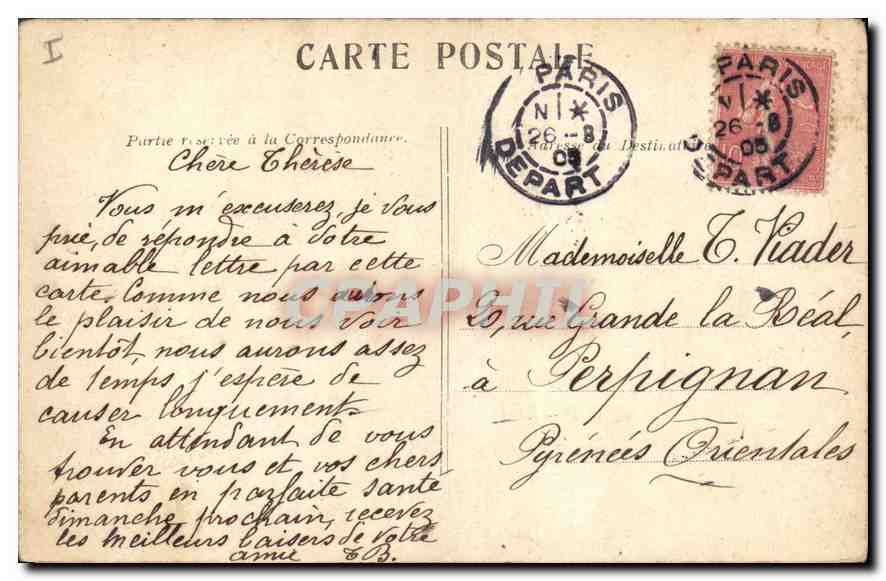 I
CARTE POSTALE
PARIS
N *
26 - 8
05
DEPART
PARIS
N *
26 - 8
05
DEPART
Partie réservée à la Correspondance.
Adresse du Destinataire
Chère Thérèse
Vous m'excuserez, je vous
prie, de répondre à votre
aimable lettre par cette
carte. Comme nous aurons
le plaisir de nous voir
bientôt nous aurons assez
de temps j'espère de
causer longuement.
En attendant de vous
trouver vous et vos chers
parents en parfaite santé
dimanche prochain, recevez
les meilleurs baisers de votre
amie TB.
Mademoiselle T. Viader
20, rue Grande la Réal,
à Perpignan
Pyrénées Orientales
CPAPHIL